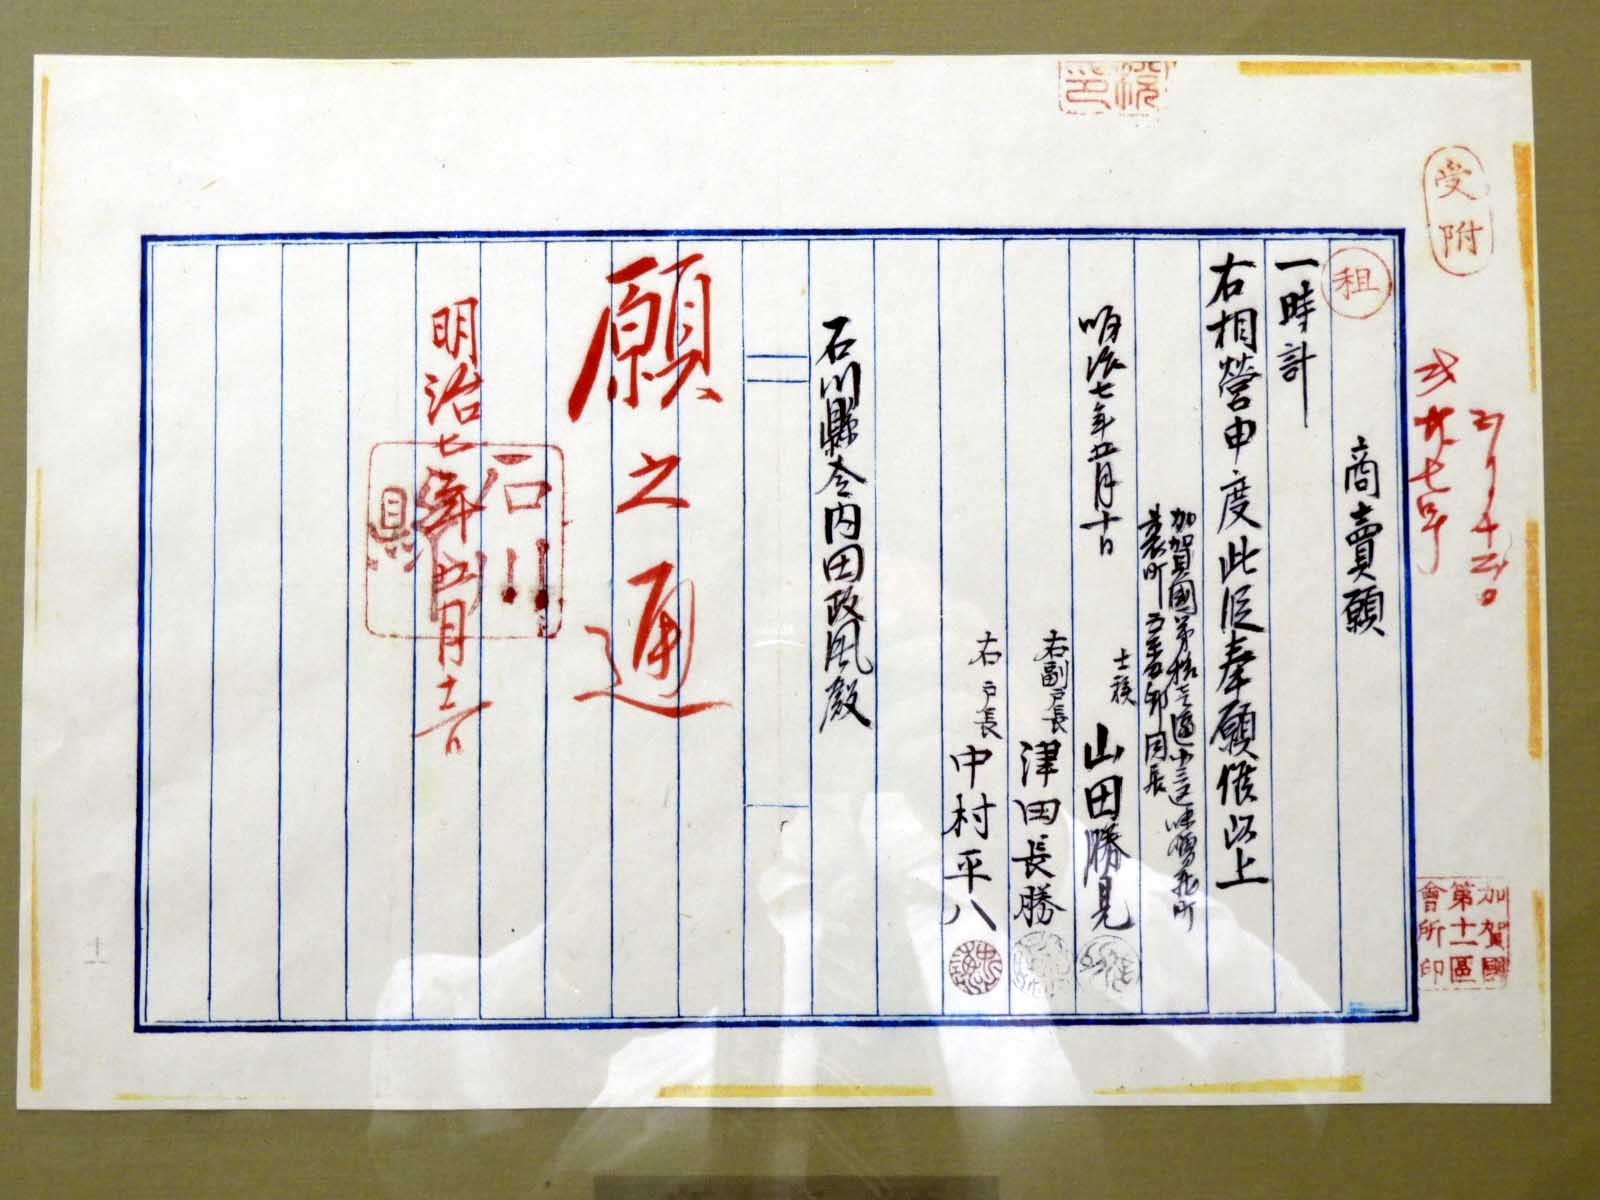 受附
租
商賣願
一時計
右相營申度此段奉願候以上
加賀國第拾壱區小三區
明治七年五月十日
士族
山田勝見
右副戸長
津田長勝
右戸長
中村平八
石川縣令内田政風殿
願之通
明治七年五月十二日
石川縣
加賀國
第十一區
會所印